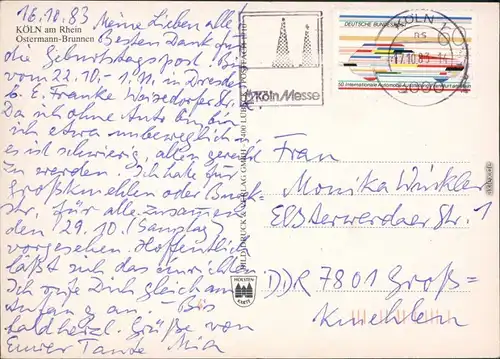 16.10.83
KÖLN am Rhein
Ostermann-Brunnen
Meine Lieben alle!
Besten Dank für
die Geburtstagspost. Bin
vom 22.10.- 1.11. in Dresden
b. E. Franke
Da ich ohne Auto bin bin
ich etwas unbeweglich u.
es ist schwierig, allen gerecht
zu werden. Ich habe für
Großkmehlen oder
Str. für alle zusammen
den 29.10. (Samstag)
vorgesehen. Hoffentlich
läßt sich das einrichten.
Ich rufe Dich gleich am
Anfang an. - Bis
bald herzl. Grüße von
Eurer Tante Mia
KölnMesse
DEUTSCHE BUNDESPOST
60
50. Internationale Automobil-Ausstellung Frankfurt am Main
KÖLN
17.10.83
5000
Frau
Monika Winkler
Elsterwerdaer Str. 1
DDR 7801 Groß=
kmehlen
HOLSTEN
KARTE